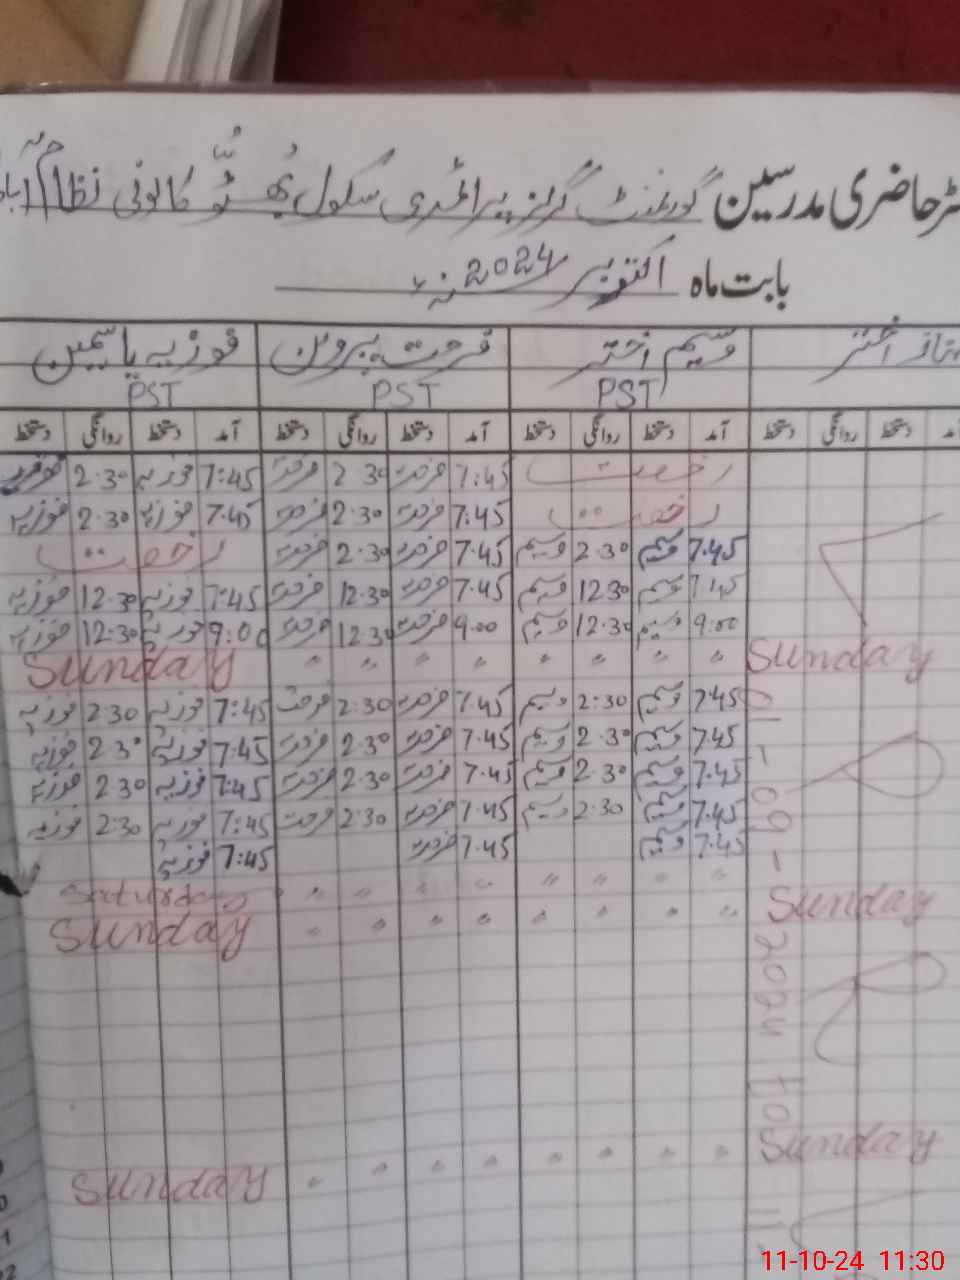 ٹر حاضری مدرسین گورنمنٹ گرلز پرائمری سکول بھٹو کالونی نظام آباد
بابت ماہ اکتوبر 2024ء
اختر وسیم اختر فرحت پروین فوزیہ یاسمین
PST PST PST
دستخط روانگی دستخط آمد دستخط روانگی دستخط آمد دستخط روانگی دستخط آمد دستخط روانگی دستخط
رخصت 7:45 فرحت 2.30 فرحت 7:45 فوزیہ 2.30 فوزیہ
رخصت 7:45 فرحت 2.30 فرحت 7.45 فوزیہ 2.30 فوزیہ
7.45 وسیم 2.30 وسیم 7.45 فرحت 2.30 فرحت رخصت
7.45 وسیم 12.30 وسیم 7.45 فرحت 12.30 فرحت 7:45 فوزیہ 12.30 فوزیہ
9.00 وسیم 12.30 وسیم 9.00 فرحت 12.30 فرحت 9:00 فوزیہ 12.30 فوزیہ
Sunday " " " " " " " " Sunday
7.45 وسیم 2:30 وسیم 7.45 فرحت 2:30 فرحت 7:45 فوزیہ 2.30 فوزیہ
7.45 وسیم 2.30 وسیم 7.45 فرحت 2.30 فرحت 7.45 فوزیہ 2.30 فوزیہ
7.45 وسیم 2.30 وسیم 7.45 فرحت 2.30 فرحت 7:45 فوزیہ 2.30 فوزیہ
7.45 وسیم 2.30 وسیم 7.45 فرحت 2.30 فرحت 7:45 فوزیہ 2:30 فوزیہ
7.45 وسیم 7.45 فرحت 7:45 فوزیہ
Saturday " " " " " " " "
Sunday " " " " " " " " Sunday
Sunday " " " " " " " " Sunday
09-2024 To
11-10-24 11:30